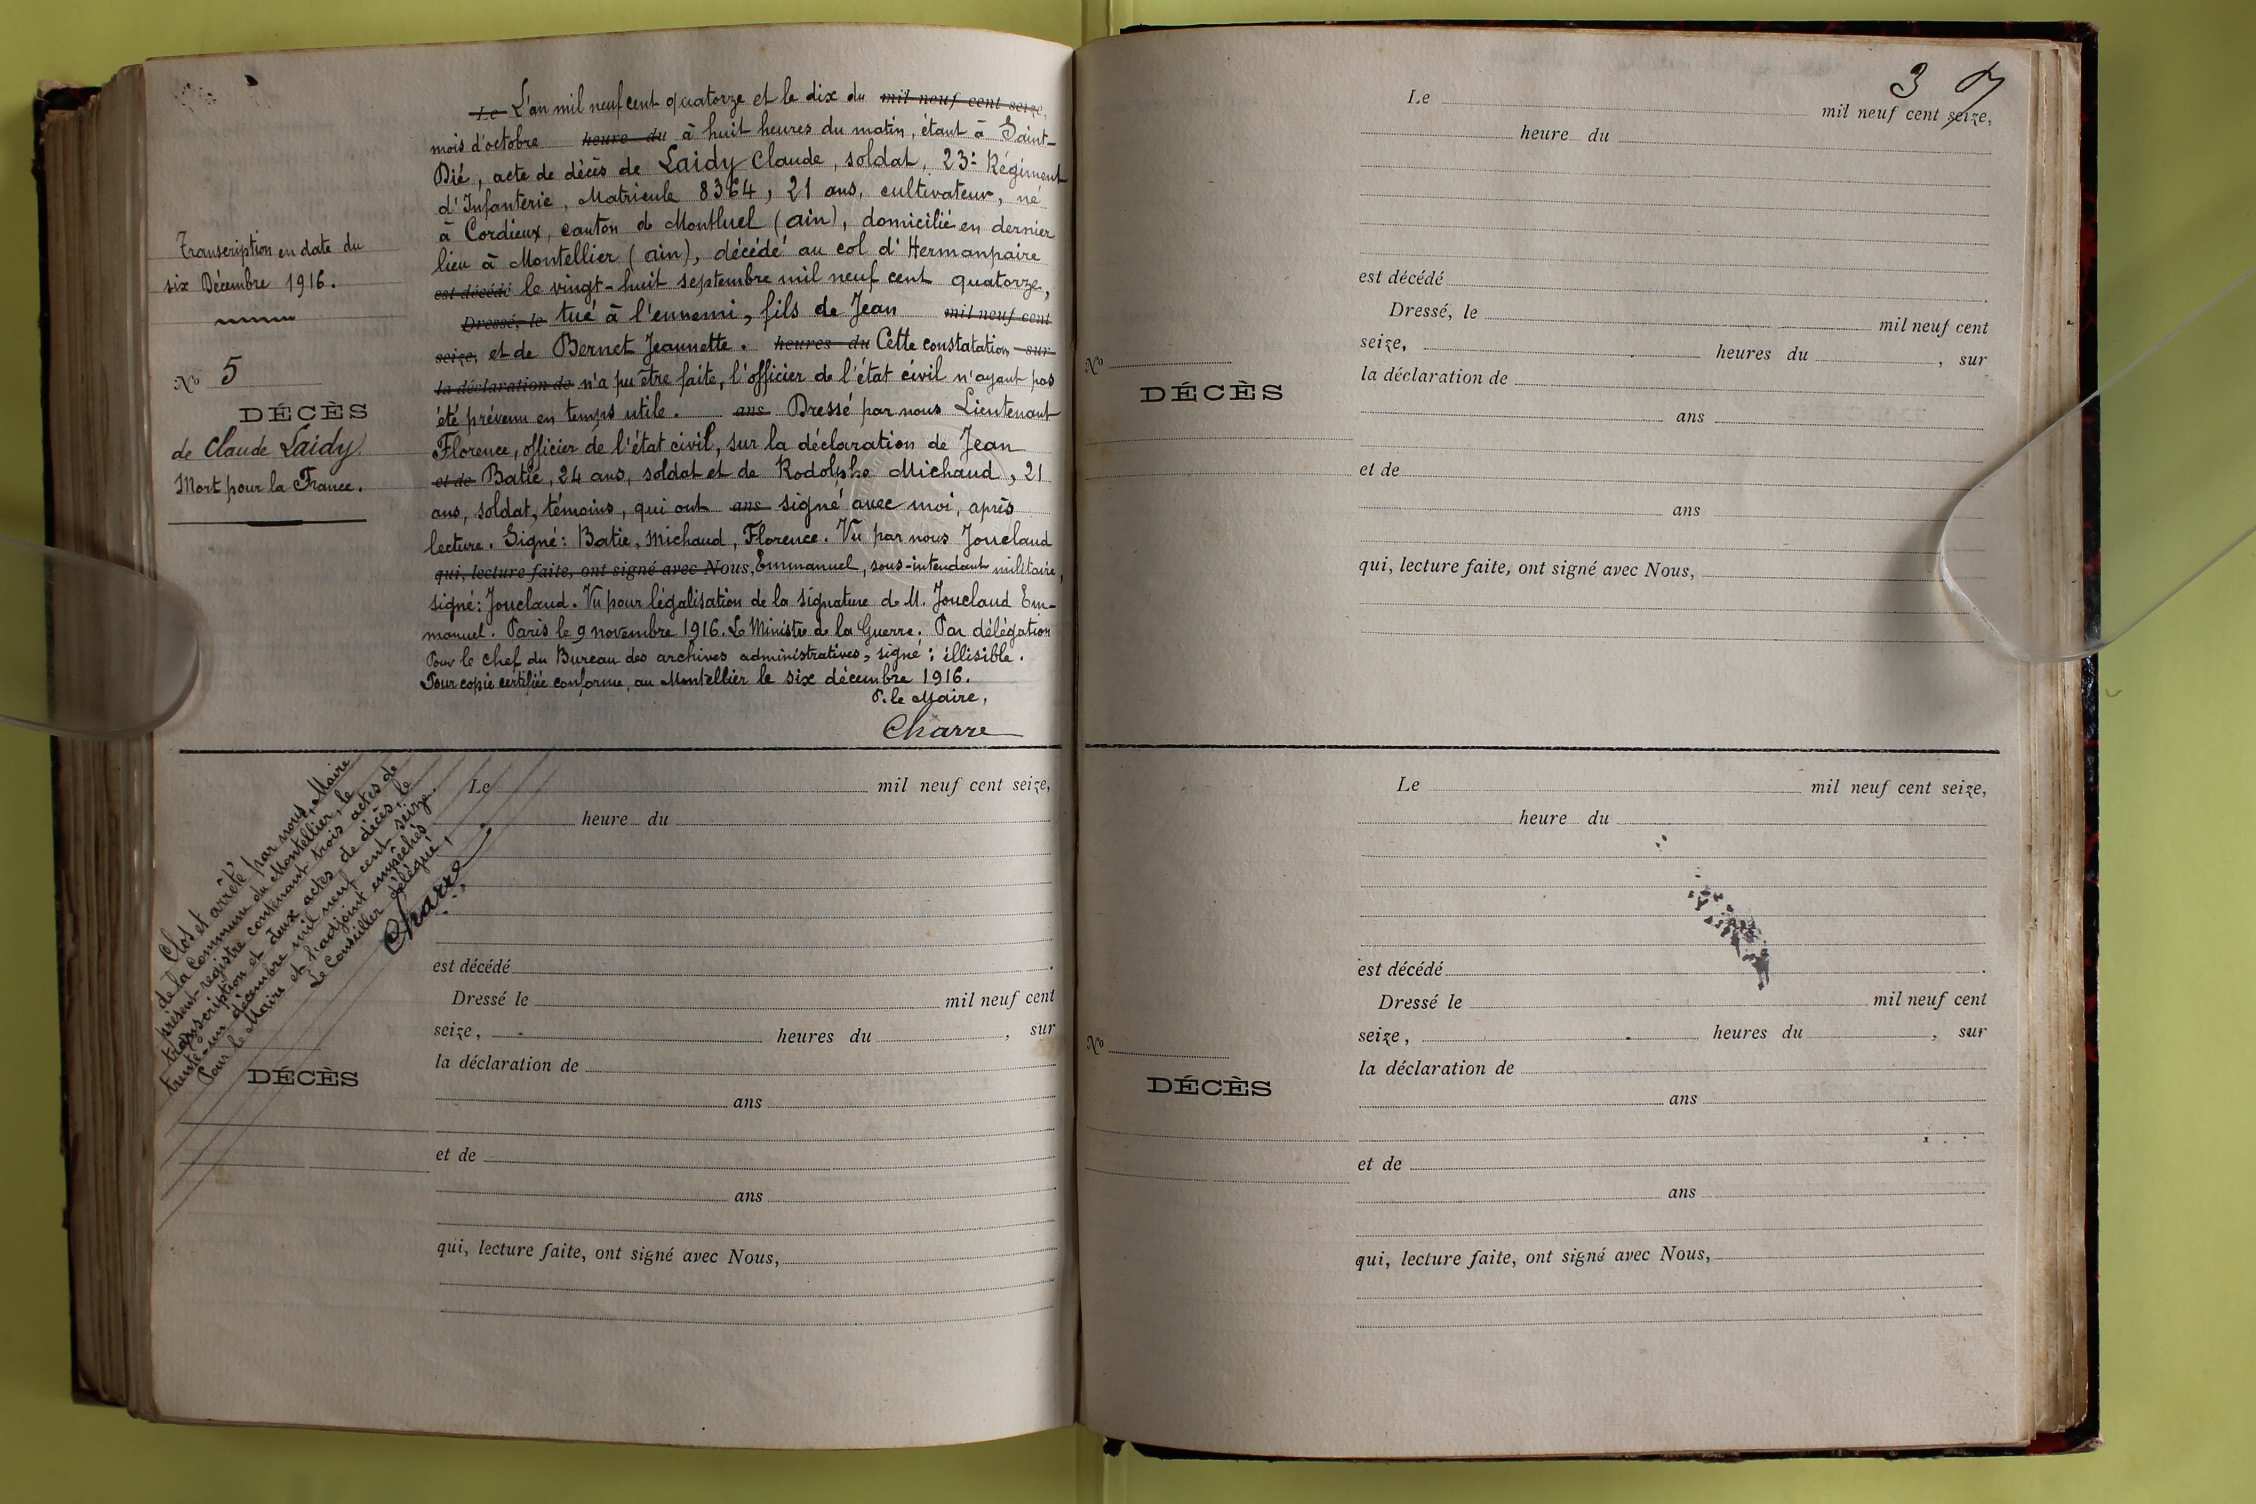 Transcription en date du
six Décembre 1916.
No 5
DÉCÈS
de Claude Laidy
Mort pour la France.
Le L'an mil neuf cent quatorze et le dix du mil neuf cent seize,
mois d'octobre heure du à huit heures du matin, étant à Saint-
Dié, acte de décès de Laidy Claude, soldat, 23e Régiment
d'Infanterie, Matricule 8364, 21 ans, cultivateur, né
à Cordieux, canton de Montluel (ain), domicilié en dernier
lieu à Montellier (ain), décédé au col d'Hermanpaire
est décédé le vingt-huit septembre mil neuf cent quatorze,
Dressé, le tué à l'ennemi, fils de Jean mil neuf cent
seize, et de Bernet Jeannette. heures du Cette constatation sur
la déclaration de n'a pu être faite, l'officier de l'état civil n'ayant pas
été prévenu en temps utile. ans Dressé par nous Lieutenant
Florence, officier de l'état civil, sur la déclaration de Jean
et de Batie, 24 ans, soldat et de Rodolphe Michaud, 21
ans, soldat, témoins, qui ont ans signé avec moi, après
lecture. Signé: Batie, Michaud, Florence. Vu par nous Jouclaud
qui, lecture faite, ont signé avec Nous, Emmanuel, sous-intendant militaire,
signé: Jouclaud. Vu pour légalisation de la signature de M. Jouclaud Em-
manuel. Paris le 9 novembre 1916. Le Ministre de la Guerre. Par délégation
Pour le chef du Bureau des archives administratives, signé: illisible.
Pour copie certifiée conforme, au Montellier le six décembre 1916.
P. le Maire,
Charre
Clos et arrêté par nous, Maire
de la Commune du Montellier, le
présent registre contenant trois actes de
transcription et deux actes de décès, le
trente-un décembre mil neuf cent seize.
Pour le Maire et l'adjoint empêchés
Le Conseiller délégué,
Charre
DÉCÈS
Le mil neuf cent seize,
heure du
est décédé .
Dressé le mil neuf cent
seize, heures du , sur
la déclaration de
ans
et de
ans
qui, lecture faite, ont signé avec Nous,
3
No
DÉCÈS
Le mil neuf cent seize,
heure du
est décédé .
Dressé, le mil neuf cent
seize, heures du , sur
la déclaration de
ans
et de
ans
qui, lecture faite, ont signé avec Nous,
No
DÉCÈS
Le mil neuf cent seize,
heure du
est décédé .
Dressé le mil neuf cent
seize, heures du , sur
la déclaration de
ans
et de
ans
qui, lecture faite, ont signé avec Nous,